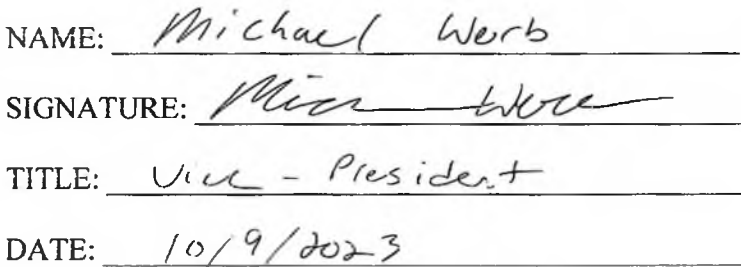 NAME: Michael Werb
SIGNATURE:
TITLE: Vice - President
DATE: 10/9/2023